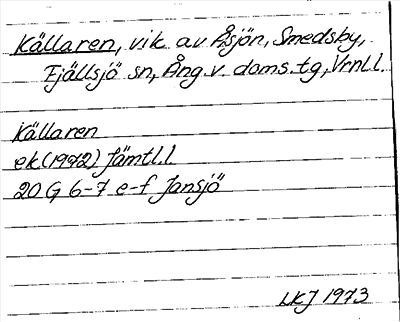 Källaren, vik av Åsjön, Smedsby,
Fjällsjö sn, Ång.v. doms.tg, Vrnl.l.
Källaren
ek (1972) Jämtl.l
20 G 6-7 e-f Jansjö
LKJ 1973